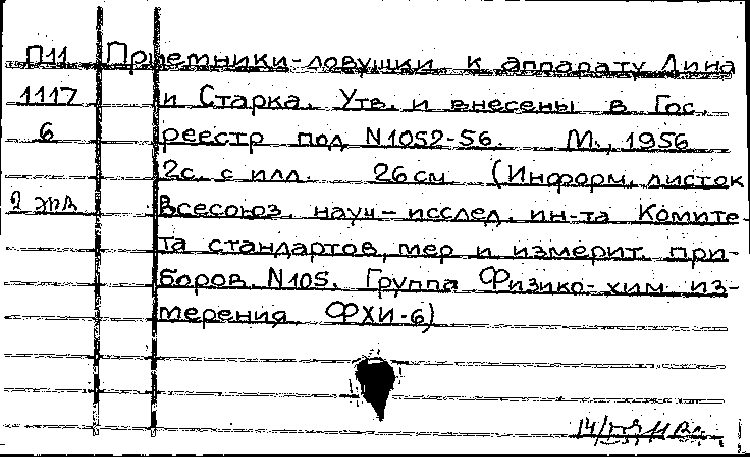 П11 Приемники-ловушки к аппарату Дина
1117 и Старка. Утв. и внесены в Гос.
6 реестр под N1052-56. М., 1956
2с. с илл. 26 см (Информ. листок
2 экз. Всесоюз. науч-исслед. ин-та Комите-
та стандартов, мер и измерит. при-
боров. N105. Группа Физико-хим из-
мерения ФХИ-6)